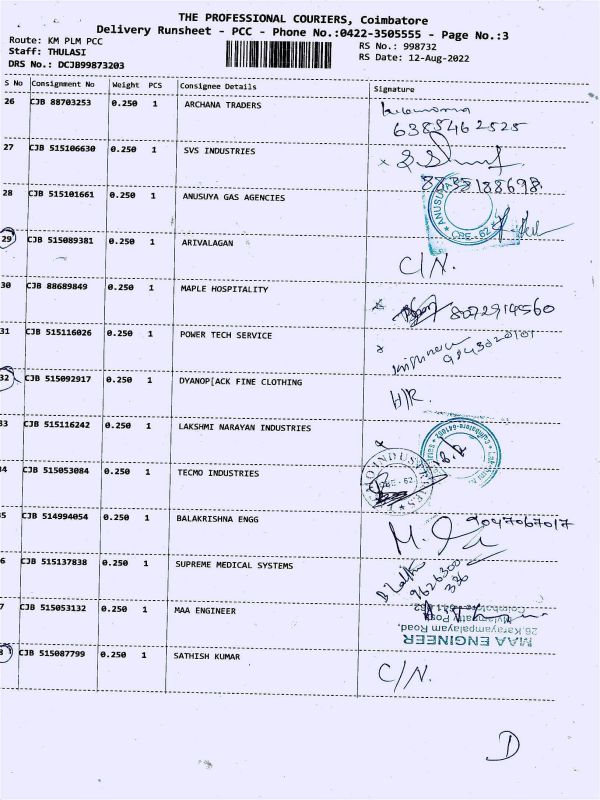 THE PROFESSIONAL COURIERS, Coimbatore
Delivery Runsheet - PCC - Phone No.:0422-3505555 - Page No.:3
Route: KM PLM PCC
Staff: THULASI
DRS No.: DCJB99873203
RS No.: 998732
RS Date: 12-Aug-2022
S No Consignment No Weight PCS Consignee Details Signature
26 CJB 88703253 0.250 1 ARCHANA TRADERS
6385462525
27 CJB 515106630 0.250 1 SVS INDUSTRIES
8835188698
28 CJB 515101661 0.250 1 ANUSUYA GAS AGENCIES
ANUSUYA CBE-62
29 CJB 515089381 0.250 1 ARIVALAGAN
C/N.
30 CJB 88689849 0.250 1 MAPLE HOSPITALITY
8072914560
31 CJB 515116026 0.250 1 POWER TECH SERVICE
9843020101
32 CJB 515092917 0.250 1 DYANOP[ACK FINE CLOTHING
H/R.
33 CJB 515116242 0.250 1 LAKSHMI NARAYAN INDUSTRIES
34 CJB 515053084 0.250 1 TECMO INDUSTRIES
INDUSTRIES
5 CJB 514994054 0.250 1 BALAKRISHNA ENGG
9047067017
6 CJB 515137838 0.250 1 SUPREME MEDICAL SYSTEMS
9626300
336
7 CJB 515053132 0.250 1 MAA ENGINEER
MAA ENGINEER
26, Karayampalayam Road,
Mylampatty Post,
8 CJB 515087799 0.250 1 SATHISH KUMAR
C/N.
D